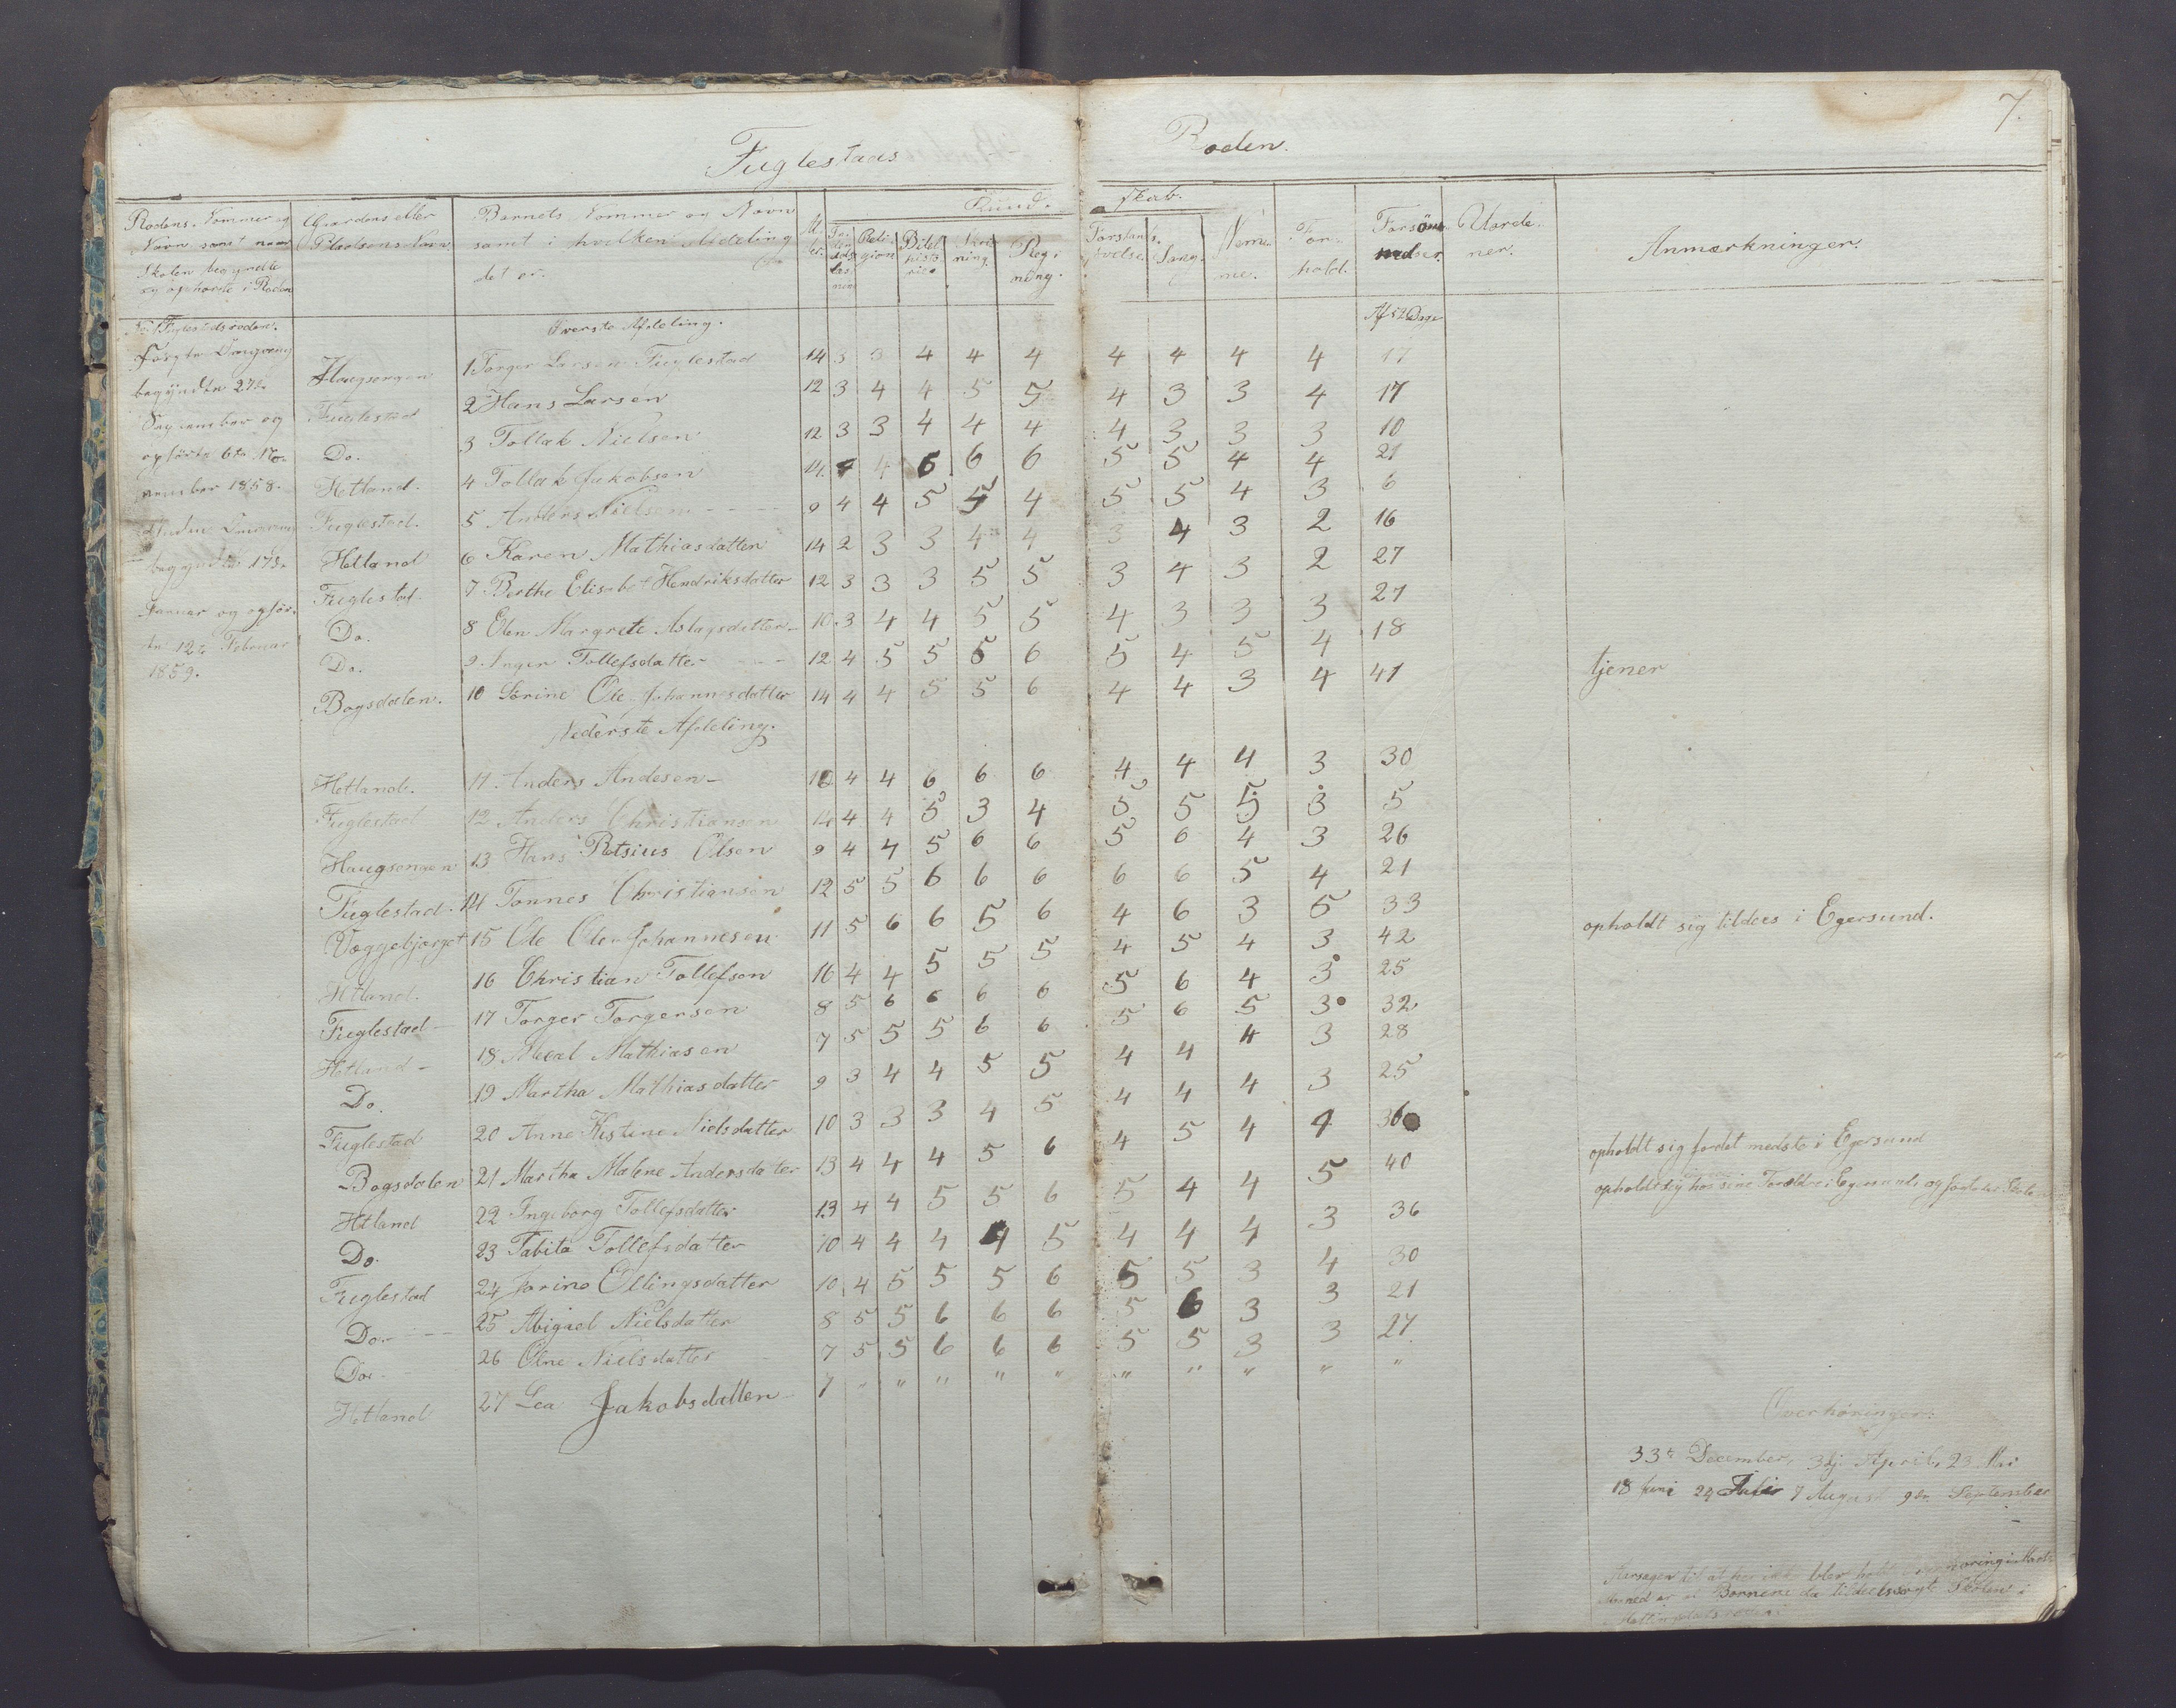 7.
Fuglestads Roden.
Rodens Nommer og Navn samt naar Skolen begyndte og ophørte i Roden
Gaardens eller Pladsens Navn
Barnets Nommer og Navn samt i hvilken Afdeling det er.
Al-der.
Kund-skab.
Religion
Bibelhistorie
Skrivning.
Regning.
Forstandsøvelse.
Sang.
Nemme.
Forhold.
Forsømmelser.
Utorde-ner.
Anmærkninger.
No 1 Fuglestadsroden.
første Omgang
begyndte 27de
September og
ophørte 6te No-
vember 1858.
Anden Omgang
begyndte 17de
Januar og ophør-
te 12te Februar
1859.
Øverste Afdeling.
Af 52 Dage
Haugsengen 1 Torger Larsen Fuglestad 14 3 3 4 4 4 4 4 4 4 17
Fuglestad 2 Hans Larsen 12 3 4 4 5 5 4 3 3 4 17
Do. 3 Tollak Nielsen 12 3 3 4 4 4 4 3 3 3 10
Hetland. 4 Tollak Jakobsen 14 4 4 6 6 6 5 5 4 4 21
Fuglestad. 5 Anders Nielsen 9 4 4 5 5 4 5 5 4 3 6
Hetland 6 Karen Mathiasdatter 14 2 3 3 4 4 3 4 3 2 16
Fuglestad. 7 Berthe Elisabet Hendriksdatter 12 3 3 3 5 5 3 4 3 2 27
Do. 8 Elen Margrete Aslagsdatter 10 3 4 4 5 5 4 3 3 3 27
Do. 9 Inger Tollefsdatter 12 4 5 5 5 6 5 4 5 4 18
Bogsdalen. 10 Serine Ole Johannesdatter 14 4 4 5 5 6 4 4 3 4 41 tjener
Nederste Afdeling.
Hetland. 11 Anders Andesen 10 4 4 6 6 6 4 4 4 3 30
Fuglestad 12 Anders Christiansen 14 4 4 5 3 4 5 5 5 3 5
Haugsengen 13 Hans Petsius Olsen 9 4 4 5 6 6 5 6 4 3 26
Fuglestad. 14 Tønnes Christiansen 12 5 5 6 6 6 6 6 5 4 21
Væggebjerget 15 Ole Olen Johannesen 11 5 6 6 5 6 4 6 3 5 33 opholdt sig tildels i Egersund.
Hetland. 16 Christian Tollefsen 16 4 4 5 5 5 4 5 4 3 42
Fuglestad 17 Torger Torgersen 8 5 6 6 6 6 5 6 4 3 25
Hetland 18 Mikal Mathiasen 7 5 5 5 6 6 5 6 5 3 32
Do. 19 Martha Mathiasdatter 9 3 4 4 5 5 4 4 4 3 28
Fuglestad 20 Anne Kistine Nielsdatter 10 3 3 3 4 5 4 4 4 3 25
Bogsdalen 21 Martha Malene Andersdatter 13 4 4 4 5 6 4 5 4 4 36 opholdt sig fordet medste i Egersund
Hetland 22 Ingeborg Tollefsdatter 13 4 4 5 5 6 5 4 4 5 40 opholdt sig hos sine Forældre i Egersund, og
Do. 23 Tabita Tollefsdatter 10 4 4 4 4 5 4 4 4 3 36
Fuglestad 24 Jorine Ellingsdatter 10 4 5 5 5 6 5 5 3 4 30
Do. 25 Abigael Nielsdatter 8 5 5 6 6 6 5 6 3 3 21
Do. 26 Olne Nielsdatter 7 5 5 6 6 6 5 5 3 3 27
Hetland 27 Lea Jakobsdatter 7 " " " " " " " " " "
Overhøringer:
33te December, 3dj. April, 23 Mai
18 Juni 24 Juli 7 August 9de September
Aarsagen til at her ikke blev
Maaned er at Børnene da tildeels søgte Skolen i